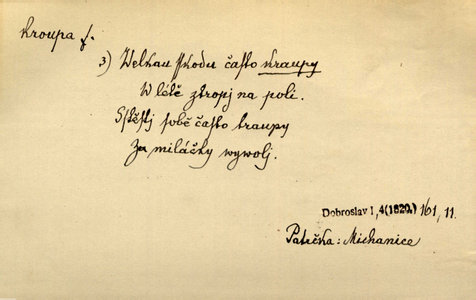 kroupa f.
3) Welkau sskodu často kraupy
W létě ztropj na poli.
Sstěstj sobě často traupy
Za miláčky wywolj.
Dobroslav I, 4 (1820) 161, 11.
Patrčka: Míchanice